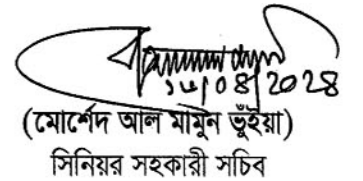 ০৪/২০২৪
(মোর্শেদ আল মামুন ভূঁইয়া)
সিনিয়র সহকারী সচিব